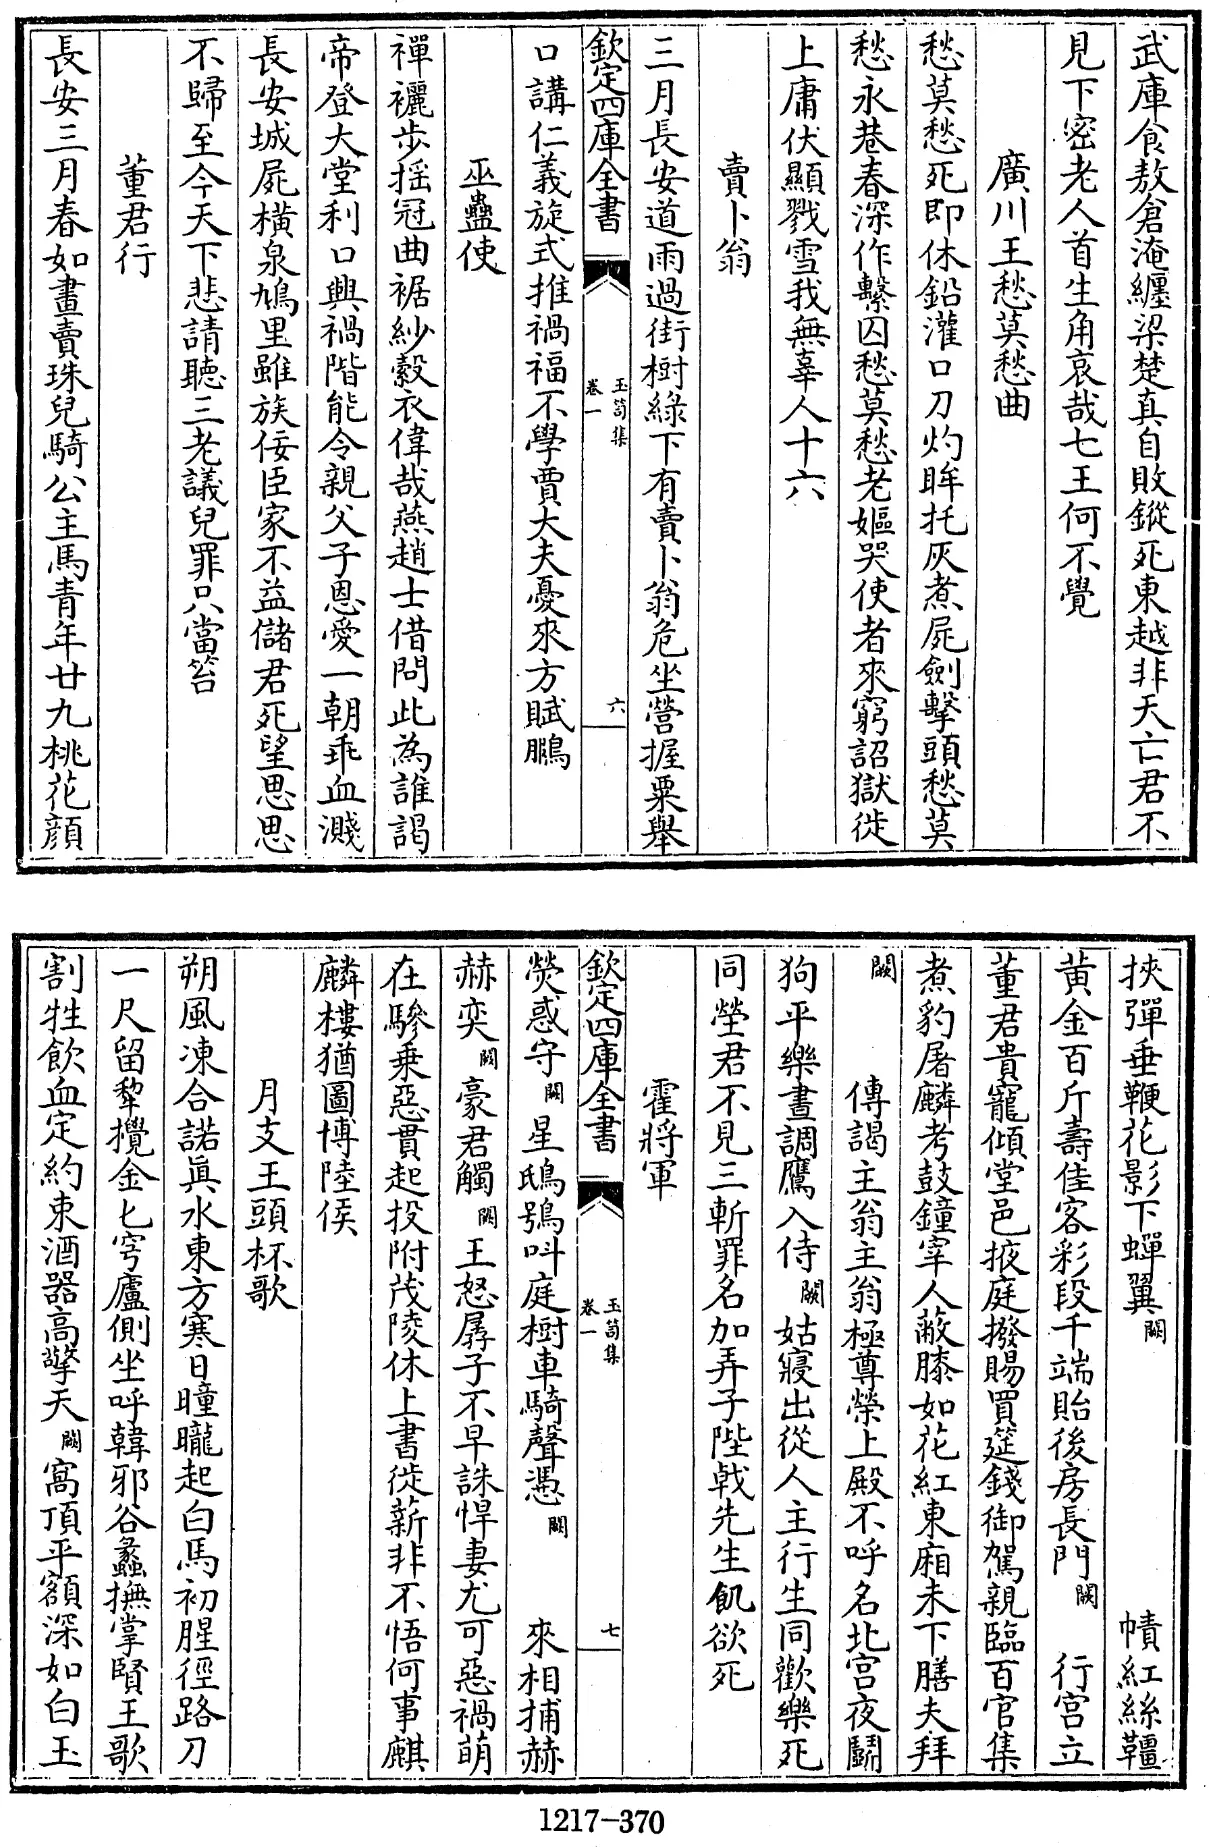 武庫食敖倉淹纏梁楚真自敗鏦死東越非天亡君不
見下密老人首生角哀哉七王何不覺
廣川王愁莫愁曲
愁莫愁死即休鉛灌口刀灼眸托灰煮屍劍擊頭愁莫
愁永巷春深作繫囚愁莫愁老嫗哭使者來窮詔獄徙
上庸伏顯戮雪我無辜人十六
賣卜翁
三月長安道雨過街樹綠下有賣卜翁危坐營握粟舉
欽定四庫全書
玉笥集
卷一
六
口講仁義旋式推禍福不學賈大夫憂來方賦鵩
巫蠱使
襌襹步搖冠曲裾紗縠衣偉哉燕趙士借問此為誰謁
帝登大堂利口興禍階能令親父子恩愛一朝乖血濺
長安城屍橫泉鳩里雖族佞臣家不益儲君死望思思
不歸至今天下悲請聽三老議兒罪只當笞
董君行
長安三月春如畫賣珠兒騎公主馬青年廿九桃花顏
挾彈垂鞭花影下蟬翼闕 幘紅絲韁
黃金百斤壽佳客彩段千端貽後房長門闕 行宮立
董君貴寵傾堂邑掖庭撥賜買筵錢御駕親臨百官集
煮豹屠麟考鼓鐘宰人蔽膝如花紅東廂未下膳夫拜
闕 傳謁主翁主翁極尊榮上殿不呼名北宮夜鬬
狗平樂晝調鷹入侍闕姑寢出從人主行生同歡樂死
同塋君不見三斬罪名加弄子陛戟先生飢欲死
霍將軍
欽定四庫全書
玉笥集
卷一
七
熒惑守闕星鴟鴞叫庭樹車騎聲憑闕 來相捕赫
赫奕闕豪君觸闕王怒孱子不早誅悍妻尤可惡禍萌
在驂乘惡貫起投附茂陵休上書徙薪非不悟何事麒
麟樓猶圖博陸侯
月支王頭杯歌
朔風凍合諾真水東方寒日曈曨起白馬初腥徑路刀
一尺留犂攪金匕穹廬側坐呼韓邪谷蠡撫掌賢王歌
割牲飲血定約束酒器高擎天闕窩頂平額深如白玉
1217-370